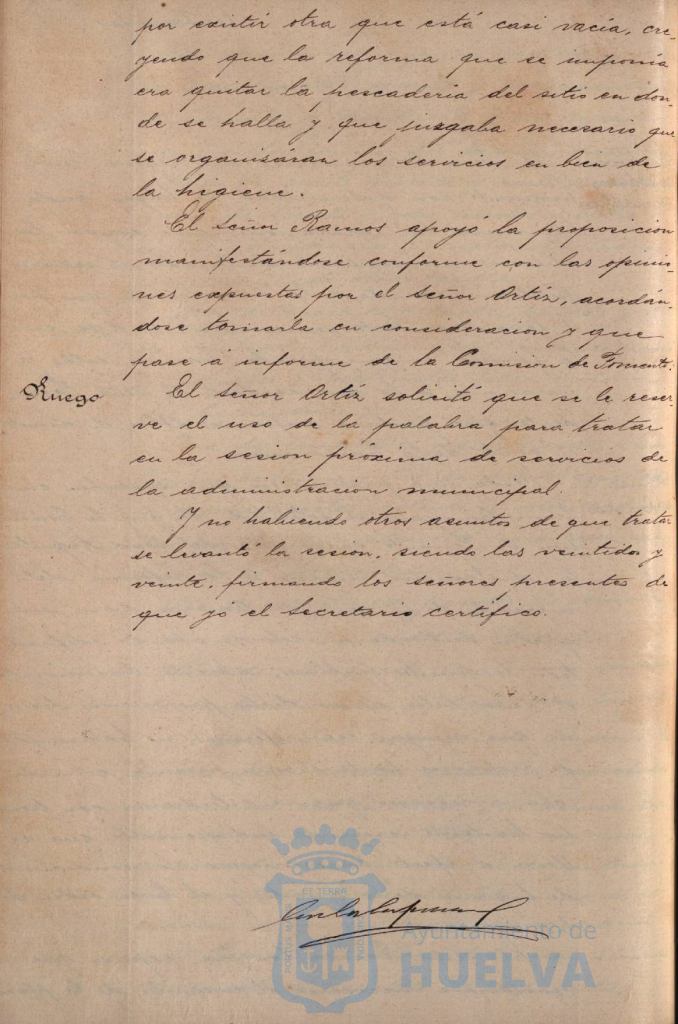 por existir otra que está casi vacía, cre-
yendo que la reforma que se imponía
era quitar la pescadería del sitio en don-
de se halla y que juzgaba necesario que
se organisáran los servicios en bien de
la higiene.
El Señor Ramos apoyó la proposicion
manifestándose conforme con las opinio-
nes expuestas por el Señor Ortíz, acordán-
dose tomarla en consideracion y que
pase á informe de la Comision de Fomento.
Ruego
El Señor Ortíz solicitó que se le reser-
ve el uso de la palabra para tratar
en la sesion próxima de servicios de
la administracion municipal.
Y no habiendo otros asuntos de que tratar
se levantó la sesion, siendo las veintidos y
veinte, firmando los señores presentes de
que yó el Secretario certifico.
PORTUS MARIS
ET TERRÆ
CUSTODIA
Ayuntamiento de
HUELVA